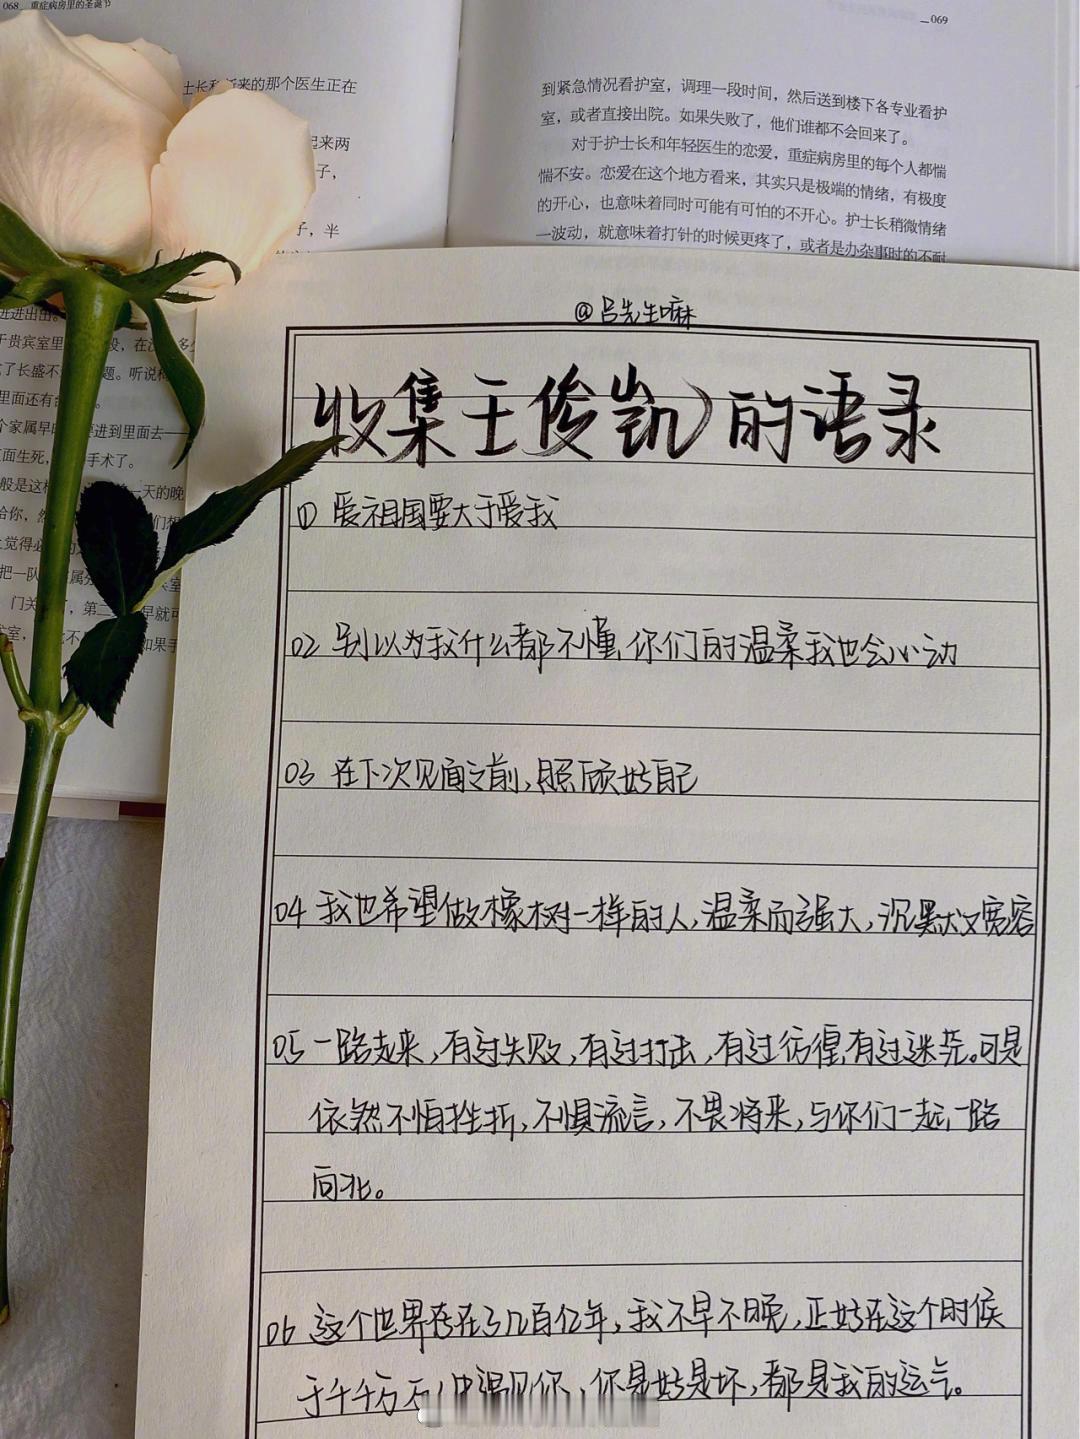 068 重症病房里的圣诞节
069
士长和新来的那个医生正在
起来两
子，
子，半
到紧急情况看护室，调理一段时间，然后送到楼下各专业看护
室，或者直接出院。如果失败了，他们谁都不会回来了。
对于护士长和年轻医生的恋爱，重症病房里的每个人都惴
惴不安。恋爱在这个地方看来，其实只是极端的情绪，有极度
的开心，也意味着同时可能有可怕的不开心。护士长稍微情绪
一波动，就意味着打针的时候更疼了，或者是办杂事时的不耐
进进出出。
于贵宾室里
，在
了长盛不
题。听说
里面还有
个家属早
要进到里面去——
面生死，
手术了。
般是这样
一天的晚
给你，然
们想
上觉得必
把一队
属
门关
，第二
早就可
室，
如果手
@吕先生嘛
收集王俊凯的语录
01 爱祖国要大于爱我
02 别以为我什么都不懂，你们的温柔我也会心动
03 在下次见面之前，照顾好自己
04 我也希望做橡树一样的人，温柔而强大，沉默又宽容
05 一路走来，有过失败，有过打击，有过彷徨，有过迷茫。可是
依然不怕挫折，不惧流言，不畏将来，与你们一起，一路
向北。
06 这个世界存在了几百亿年，我不早不晚，正好在这个时候
于千千万万人中遇见你，你是好是坏，都是我的运气。